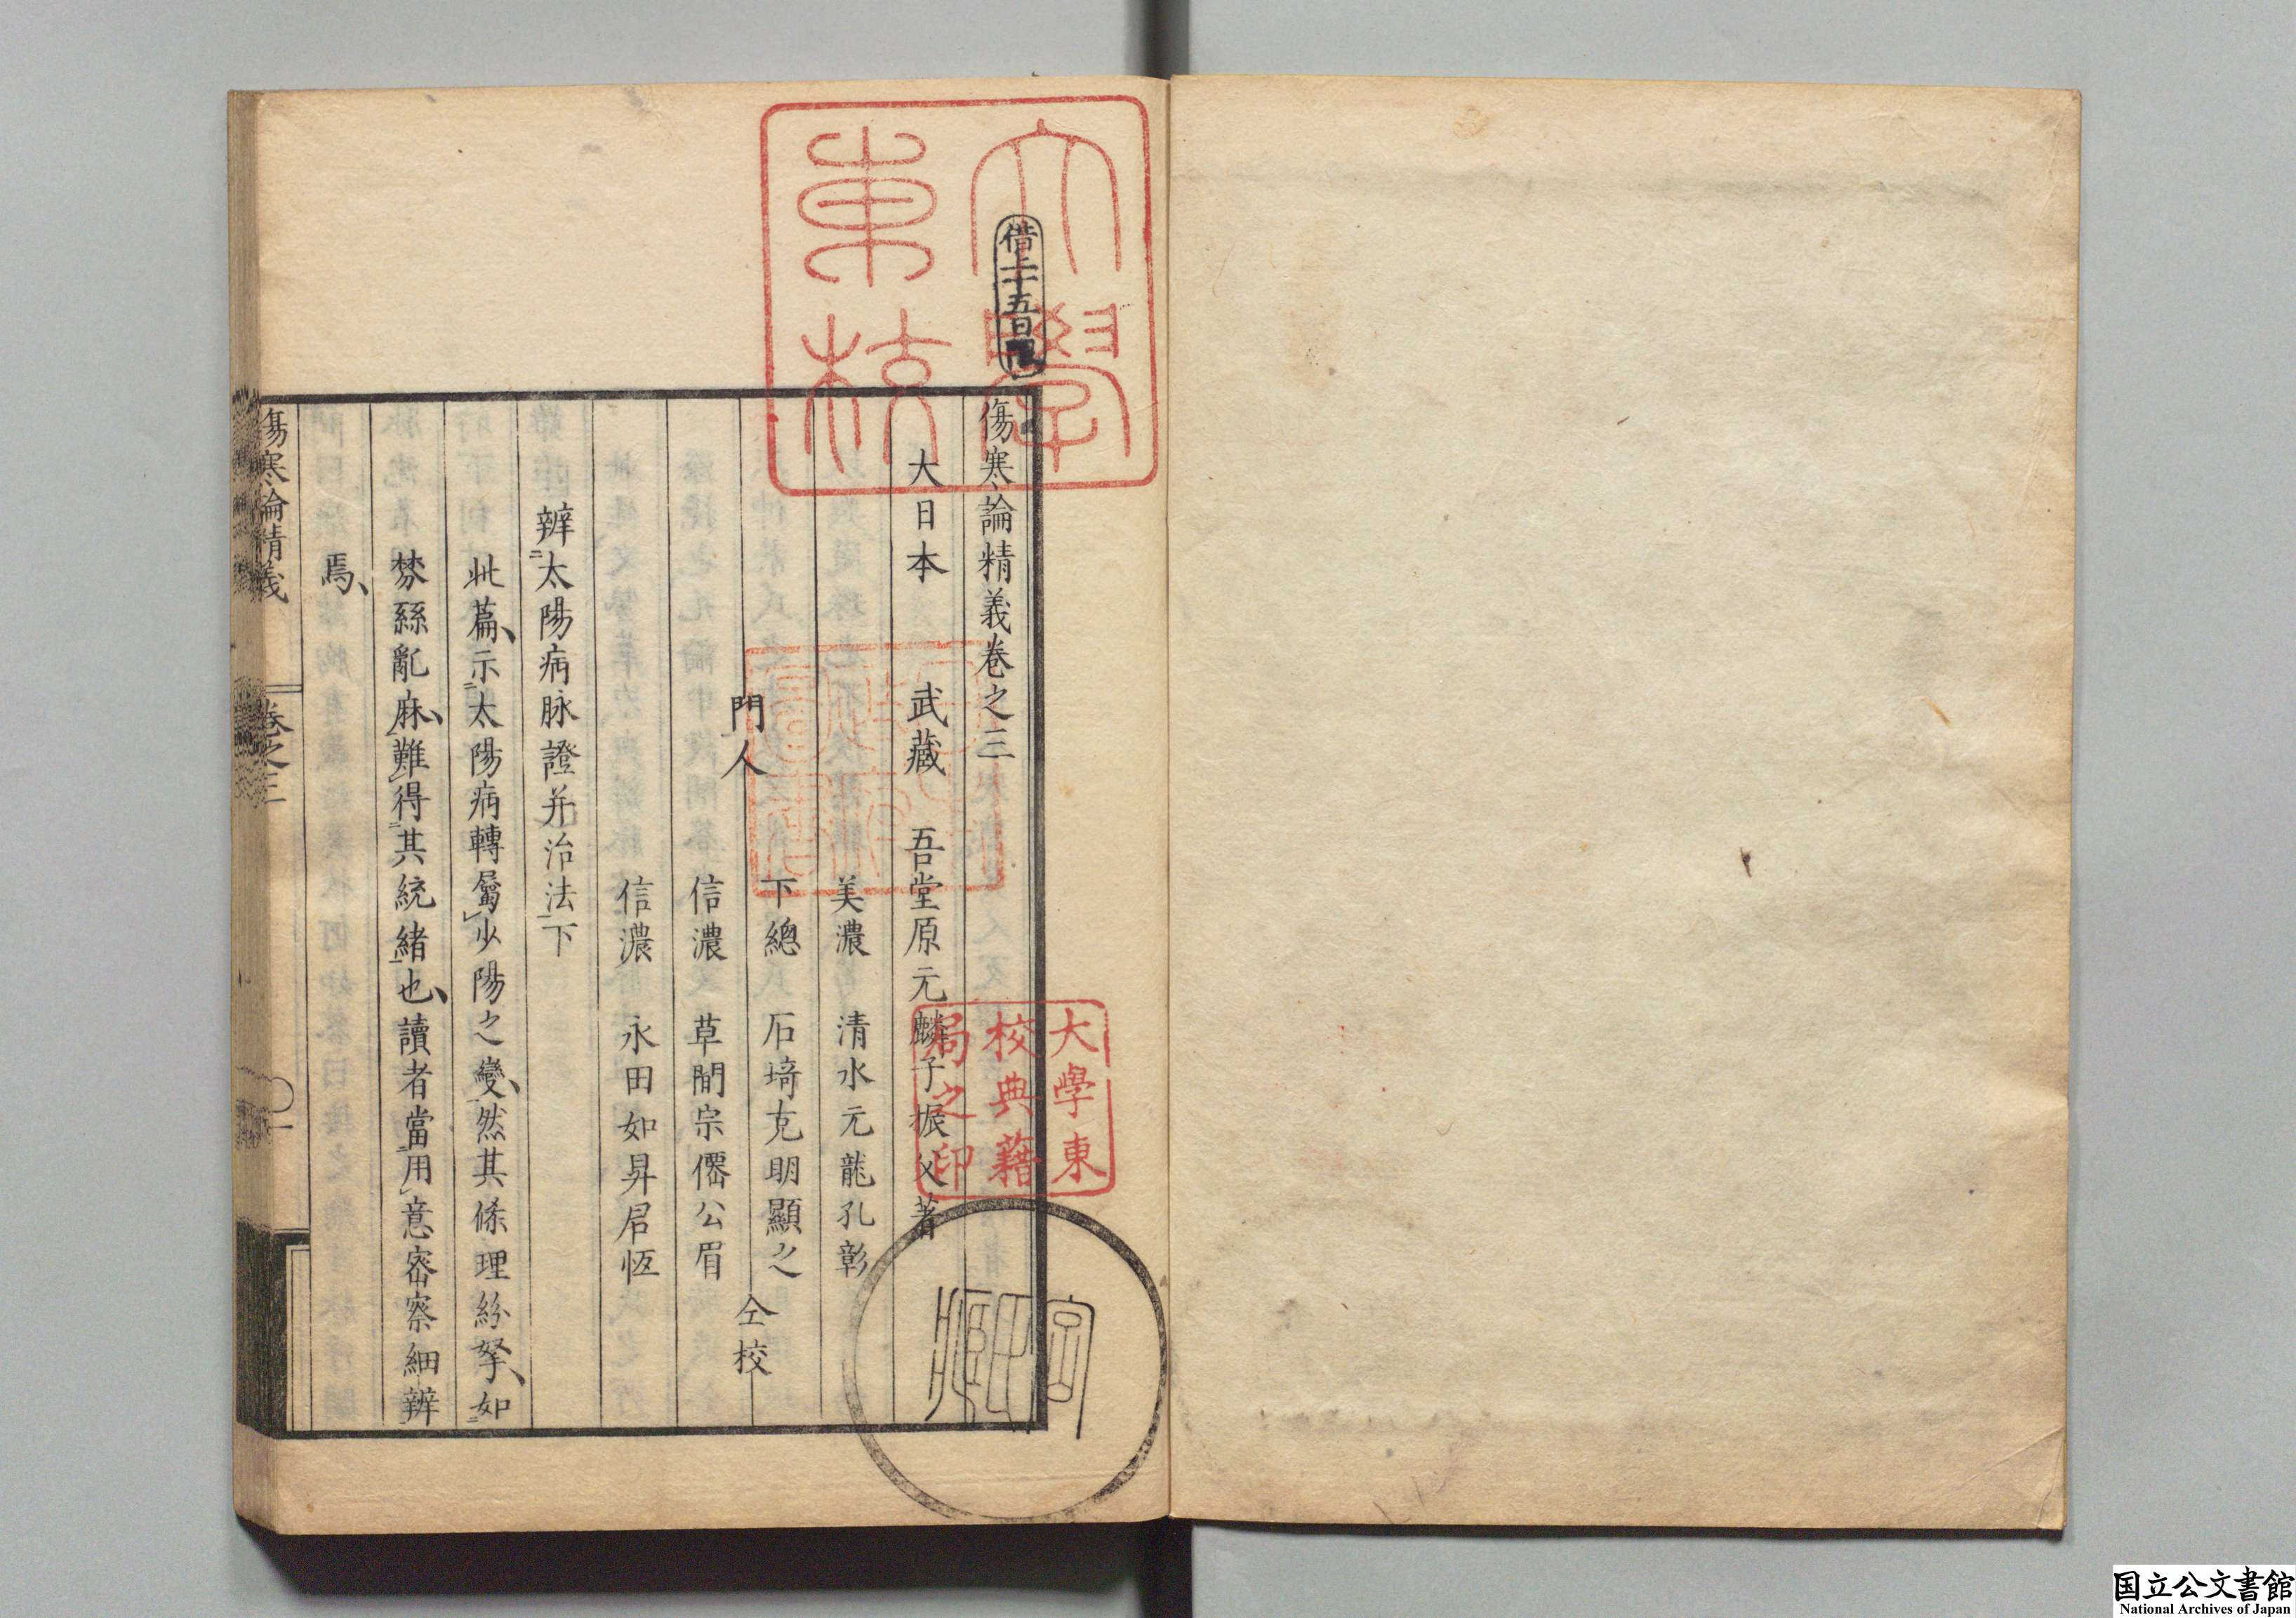 傷寒論精義卷之三
大日本　武藏　吾堂原元麟子振父著
美濃　清水元龍孔彰
下總　石埼克明顯之
門人　仝校
信濃　草間宗僊公眉
信濃　永田如昇君恆
辨太陽病脉證并治法下
此篇、示太陽病轉屬少陽之變、然其條理紛拏、如
棼絲亂麻、難得其統緒也、讀者當用意密察細辨
焉、
傷寒論精義　卷之三　〇一
大學東校
大學東校典籍局之印
国立公文書館
National Archives of Japan